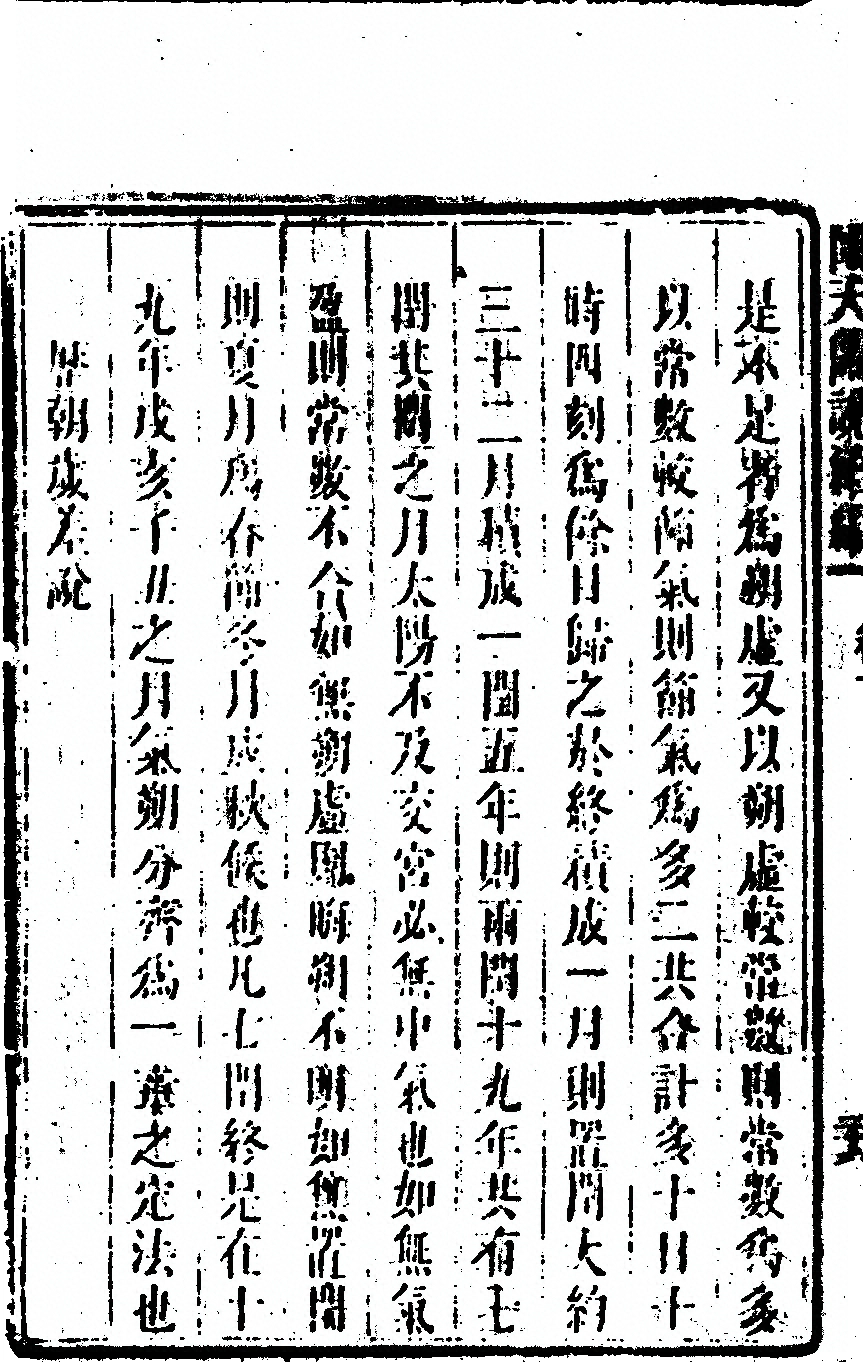 是不足者爲朔虛又以朔虛較常數則常數爲多
以常數較節氣則節氣爲多二共合計多十日十
時四刻爲餘日歸之於終積成一月則置閏大約
三十二月積成一閏五年則兩閏十九年共有七
閏其閏之月太陽不及交宮必無中氣也如無氣
盈則常數不合如無朔虛則晦朔不明如無置閏
則夏月爲春節冬月成秋候也凡七閏終是在十
九年戌亥子丑之月氣朔分齊爲一章之定法也
歷朝歲差說